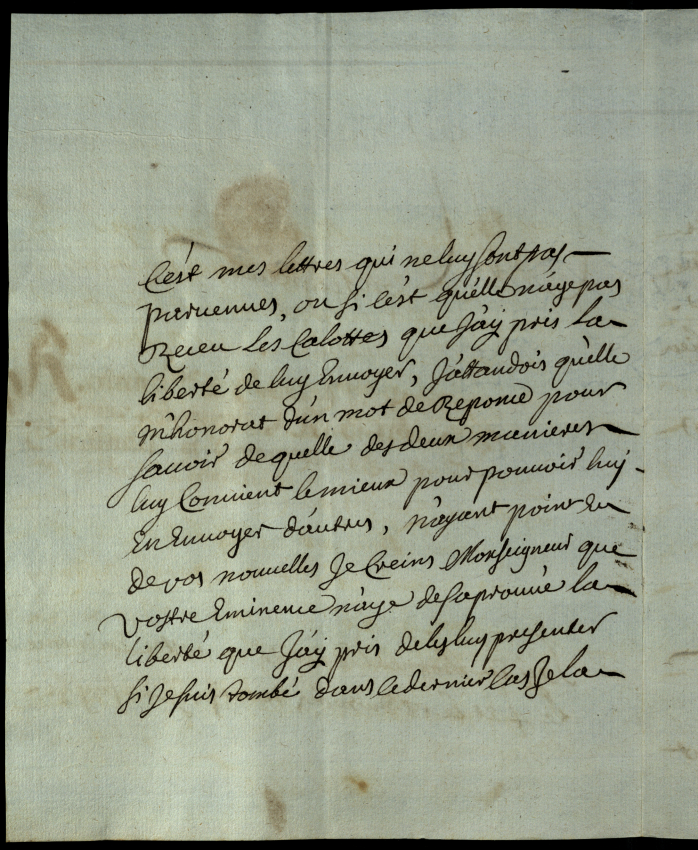 C'est mes lettres qui ne luy sont pas
parvenues, ou si c'est qu'elle n'aye pas
Receu les Calottes que J'ay pris la
liberté de luy Envoyer, J'attandois qu'elle
m'honorat d'un mot de Reponce pour
savoir de quelle des deux manieres
luy Convient le mieux pour pouvoir luy
En Envoyer d'autres, n'ayant point Eu
de vos nouvelles Je Creins Monseigneur que
vostre Eminence n'aye desaprouvé la
liberté que J'ay pris de les luy presenter
si Je suis tombé dans ce dernier Cas Je la